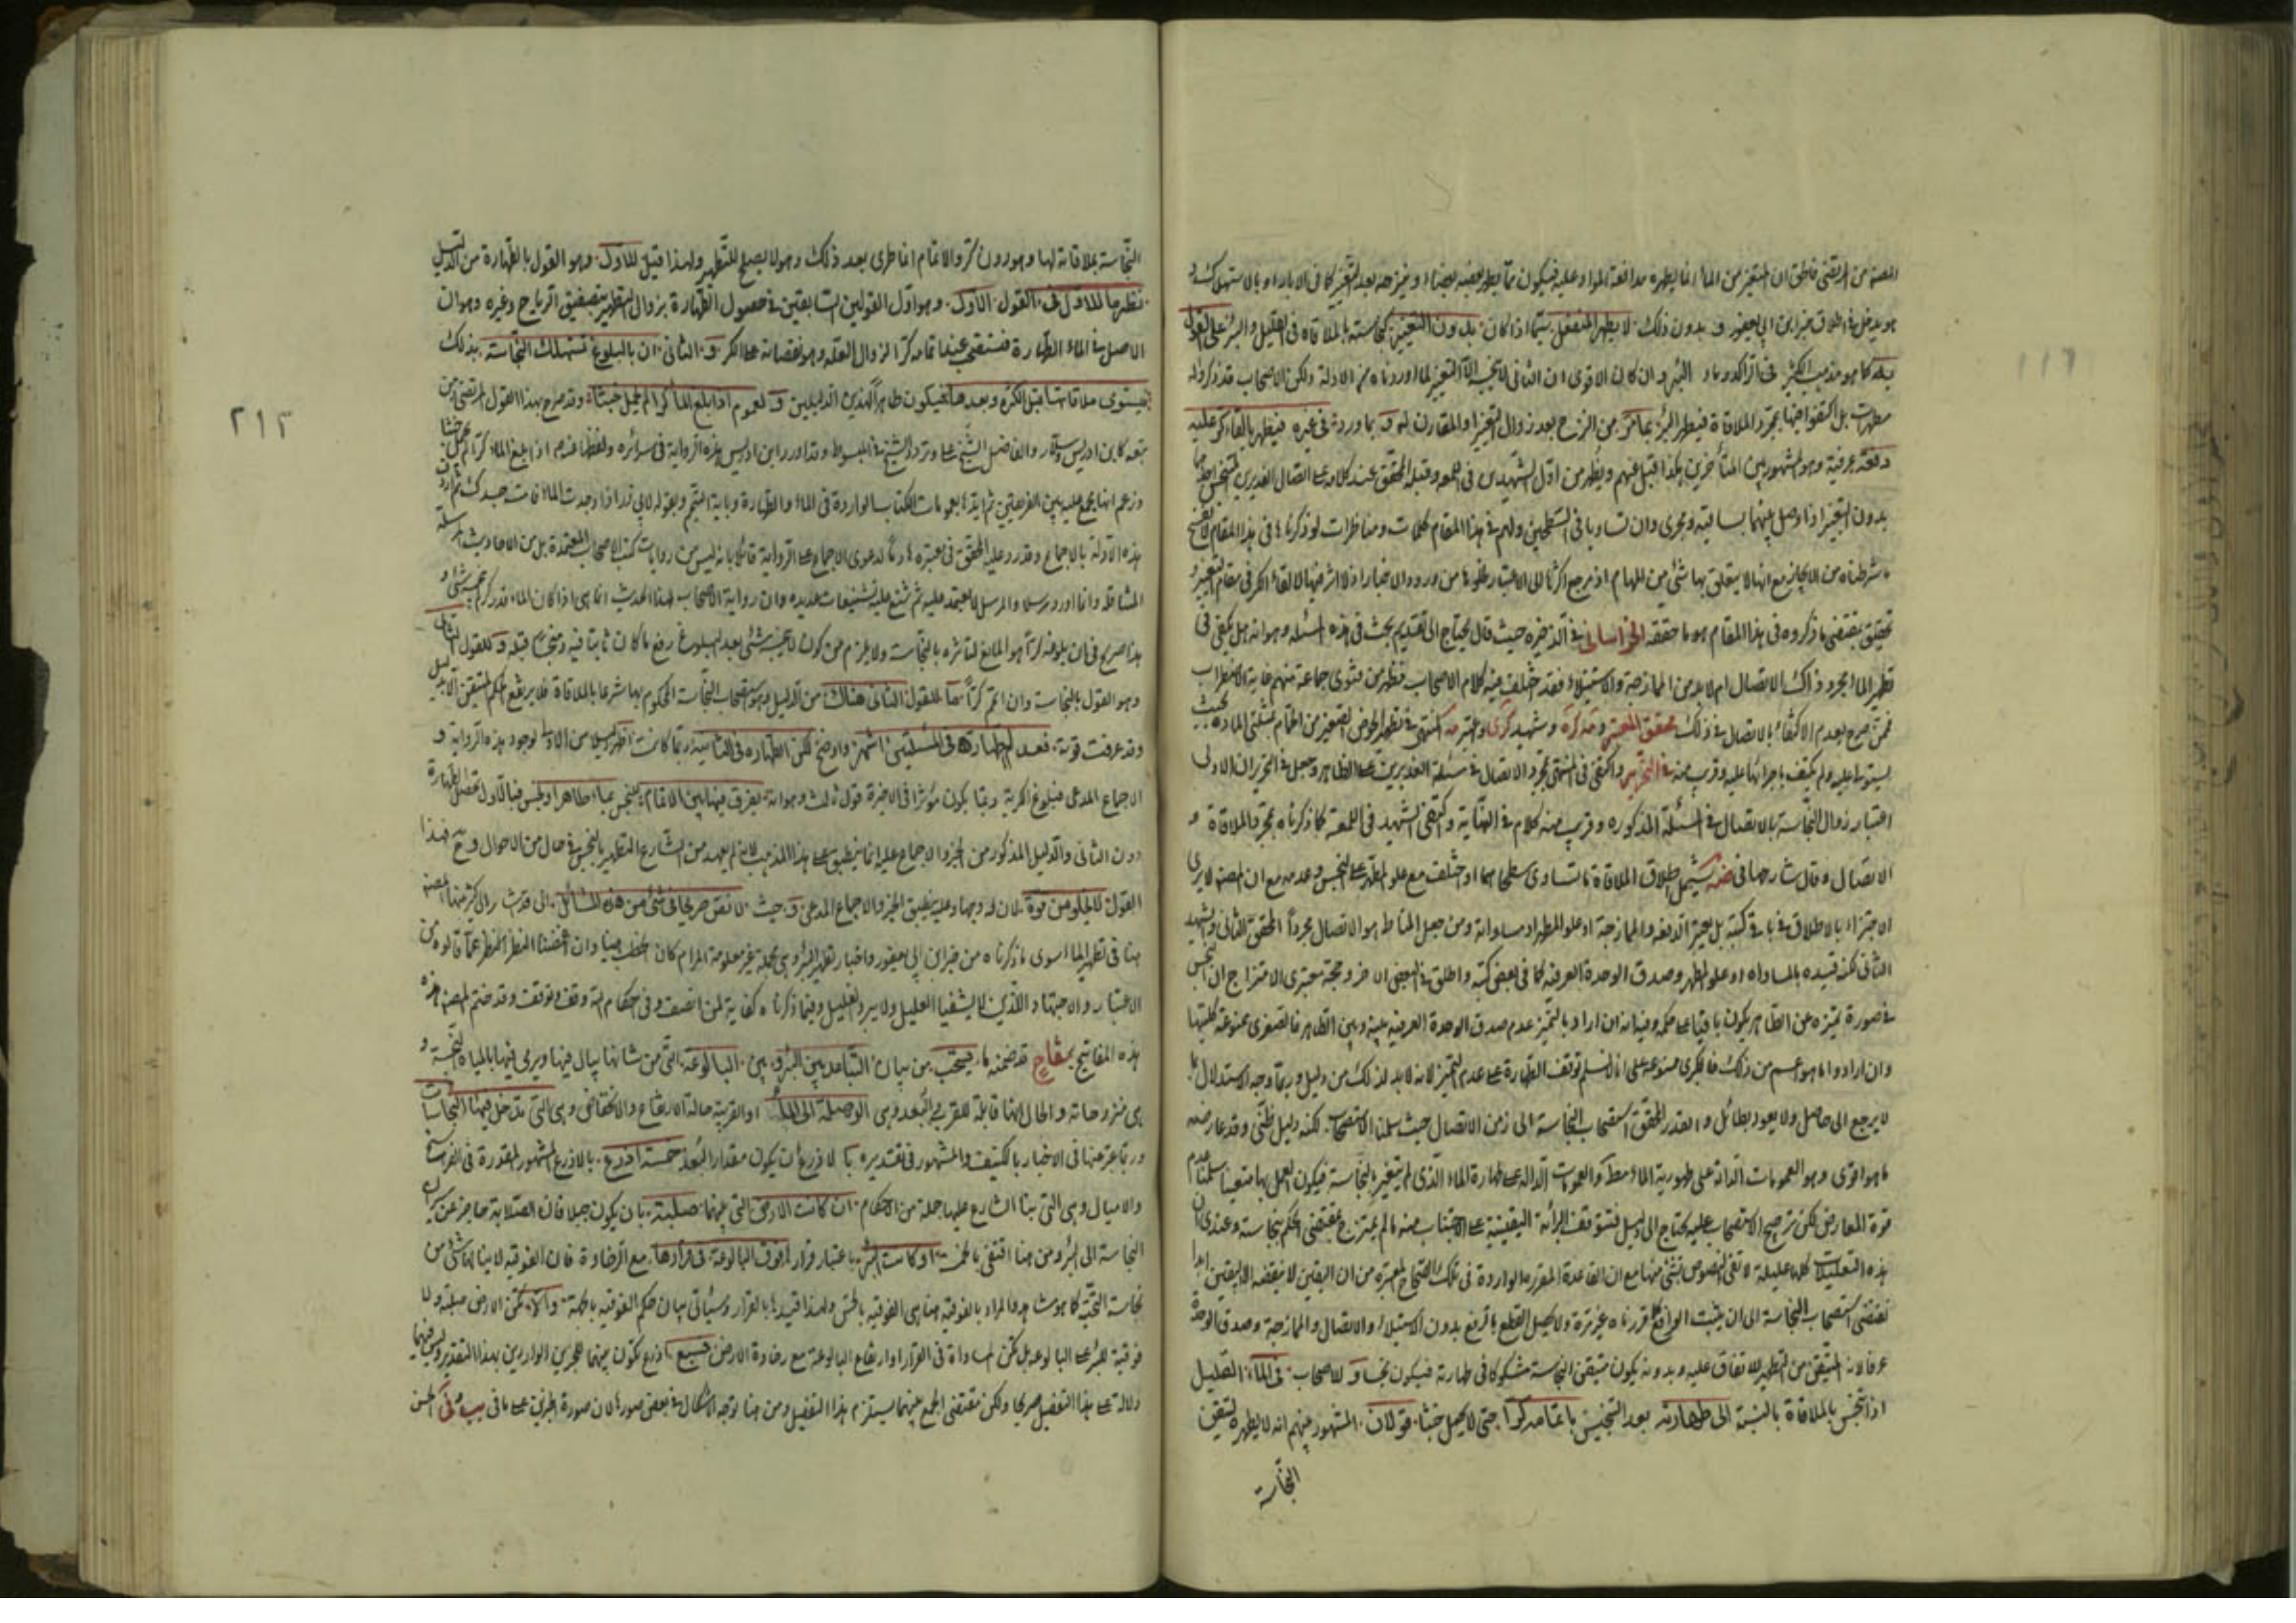 المصنف من المرتضى فاطق ان المتغير من الماء انما يطهره مدافعة الموارد عليه فيكون مما يطهر بعضه بعضاً
هو يدخل في اطلاق خبر ابن ابي يعفور و بدون ذلك لا يطهر المنفعل سيما اذا كان بدون التغيير كنجاسته بالملاقاة في القليل والبئر على القول
به كما هو مذهب الكثير في الراكد وماء البئر وان كان الاقوى ان الثاني لا ينجسه الا التغير لما اوردناه من الادلة ولكن الاصحاب قد ذكروا له
مطهرات بل اكتفوا فيها بمجرد الملاقاة فيطهر البئر بما مر من النزح بعد زوال التغير او المقارن له و بما ورد في غيره فيطهر بالقاء كر عليه
دفعة عرفية وهو المشهور بين المتأخرين هكذا قيل عنهم ويظهر من اول الشهيدين في اللمعة وقبله المحقق عند كلامه على اتصال الغديرين
بدون التغير اذا وصل بينهما بساقية ومجرى وان تساويا في السطحين ولهم في هذا المقام كلمات ومناظرات لو ذكرناها في هذا المقام
ما شرطناه من الايجاز مع انها لا يتعلق بها شئ من المهام اذ يرجع اكثرها الى الاعتبار لخلوها من ورود الاخبار اذ لا اثر فيها لالقاء الكر في مقام التغير و
تحقيق يقتضى ما ذكروه في هذا المقام هو ما حققه الخراساني في الذخيرة حيث قال يحتاج الى تقديم بحث في هذه المسئلة وهو انه هل يكفي في
تطهير الماء مجرد ذاك الاتصال ام لابد من الممازجة والاستيلاء فقد اختلف فيه كلام الاصحاب فظهر من فتوى جماعة منهم غاية الاضطراب
فممن صرح بعدم الاكتفاء بالاتصال في ذلك محقق المعتبر و تذكرة وشهيد ذكرى واعتبر في المنتهى في تطهير الحوض الصغير من الحمام بمسئلتي المادة بحيث
يستولى عليه ولم يكتف باجرائها عليه وقريب منه في التحرير واكتفى في المنتهى بمجرد الاتصال في مسئلة الغديرين على الظاهر وجعل في التحرير ان الاولى
اعتبار زوال النجاسة بالاتصال في المسئلة المذكورة وقريب منه كلامه في النهاية واكتفى الشهيد في اللمعة كما ذكرناه بمجرد الملاقاة و
الاتصال وقال شارحها في ضه يشمل اطلاق الملاقاة ما تساوى سطحاهما او اختلف مع علو المطهر على النجس وعدمه مع ان المصنف لا يرى
الاجتزاء بالاطلاق في باقي كتبه بل يعتبر الدفعة والممازجة او علو المطهر او مساواته وممن جعل المناط هو الاتصال مجرداً المحقق الثاني والشهيد
الثاني لكنه قيده بالمساواة او علو المطهر وصدق الوحدة العرفية كما في بعض كتبه واطلق في البعض الاخر وحجة معتبرى الامتزاج ان النجس
في صورة تميزه عن الطاهر يكون باقياً على حكمه وفيه انه ان اراد بالتميز عدم صدق الوحدة العرفية بينه وبين الطاهر فالصغرى ممنوعة كليتها
وان ارادوا ما هو اعم من ذلك فالكبرى ممنوعة على انا لا نسلم توقف الطهارة على عدم التميز لانه لابد لذلك من دليل وربما وجه الاستدلال بما
لا يرجع الى حاصل ولا يعود بطائل و القدر المحقق استصحاب النجاسة الى زمن الاتصال حيث سلمنا الاستصحاب لكنه دليل ظنى وقد عارضه
ما هو اقوى وهو العمومات الدالة على طهورية الماء مطلقاً والعمومات الدالة على طهارة الماء الذى لم يتغير بالنجاسة فيكون العمل بها متعيناً سلمنا عدم
قوة المعارض لكن ترجيح الاستصحاب عليه يحتاج الى دليل فتتوقف البرائة اليقينية على الاجتناب منه ما لم يمتزج بمقتضى الحكم بنجاسته وعندى ان
هذه التعليلات كلها عليلة لا تفى النصوص بشئ منها مع ان القاعدة المقررة الواردة في تلك الصحاح المعتبرة من ان اليقين لا ينقضه الا اليقين ابدا
تقتضى استصحاب النجاسة الى ان يثبت الرافع كما قررناه غير مرة ولا يحصل القطع بالرفع بدون الاستيلاء والاتصال والممازجة وصدق الوحدة
عرفا لانه المتيقن من التطهير للاتفاق عليه وبدونه يكون متيقن النجاسة مشكوكا في طهارته فيكون نجساً و للاصحاب في الماء القليل
اذا تنجس بالملاقاة بالنسبة الى طهارته بعد التنجيس باتمامه كراً حتى لا يحمل خبثا قولان المشهور بينهم انه لا يطهره لتيقن
النجاسة
١١٦
النجاسة بملاقاته لها وهو دون كر والاتمام انما طرى بعد ذلك وهو لا يصلح للتطهير ولهذا قيل للاول وهو القول بالطهارة من الدليل
نظرها للاول في القول الاول وهو اول القولين السابقين في حصول الطهارة بزوال التغير بتصفيق الرياح وغيره وهو ان
الاصل في الماء الطهارة فتستصحب عند اتمامه كراً لزوال العلة وهو نقصانه على الكر و الثاني ان بالبلوغ تستهلك النجاسة بذلك
فيستوى ملاقاتها قبل الكثرة وبعدها فيكون طاهراً لهذين الدليلين و لعموم اذا بلغ الماء كراً لم يحمل خبثاً وقد صرح بهذا القول المرتضى ومن
تبعه كابن ادريس وسلار والفاضل الشيخ على وتردد الشيخ في المبسوط وقد اورد ابن ادريس هذه الرواية في سرائره ولفظها عندهم اذا بلغ الماء كراً لم يحمل خبثا
وزعم انها مجمع عليه بين الفريقين ثم ايدها بعمومات الكتاب الواردة في الماء والطهارة وباية التيمم وبقوله لابي ذر اذا وجدت الماء فامسه جسدك ثم اردف
هذه الادلة بالاجماع وقد رد عليه المحقق في معتبره راداً لدعوى الاجماع على الرواية قائلا بانه ليس من روايات كتب الاصحاب المعتمدة بل من الاحاديث المرسلة
الساقطة وانما اورد مرسلا والمرسل لا يعتمد عليه ثم شنع عليه تشنيعات عديدة وان رواية الاصحاب لهذا الحديث انما هي اذا كان الماء قدر كر لم ينجسه شئ و
هذا صريح في ان بلوغه كراً هو المانع لتاثره بالنجاسة ولا يلزم من كونه لا ينجسه شئ بعد البلوغ رفع ما كان ثابتا فيه ومنجساً قبله و للقول الثاني
وهو القول بالنجاسة وان اتم كراً ما للقول الثانى هناك من الدليل وهو استصحاب النجاسة المحكوم بها شرعا بالملاقاة فلا يرتفع الحكم المتيقن الا بدليل
وقد عرفت قوته فعدم الطهارة في المسئلتين اشهر واوضح لكن الطهارة في الثانية ربما كانت اظهر دليلا من الاولى لوجود هذه الرواية و
الاجماع المدعى فبلوغ الكرية ربما يكون مؤثراً في الاخيرة قول ثالث وهو انه يفرق فيها بين الاتمام للنجس بماء طاهر او نجس فبالاول تحصل الطهارة
دون الثاني والدليل المذكور من الخبر والاجماع عليه انما ينطبق على هذا المذهب لانه لم يعهد من الشارع التطهير بالنجس في حال من الاحوال و ح فهذا
القول لا يخلو من قوة لان له وجها وعليه ينطبق الخبر والاجماع المدعى و حيث لا نص صريحا في شئ من هذه المسائل التى قد اشار الى كثير منها المصنف
هنا في تطهير الماء سوى ما ذكرناه من خبر ابن ابي يعفور واخبار تطهير البئر وهي مجملة غير معلومة المرام كان الخطب هينا وان اغمضنا النظر عما قالوه من
الاعتبار والاجتهاد اللذين لا يشفيا العليل ولا يبرد الغليل وفيما ذكرناه كفاية لمن انصف وفي احكام الله وقف وتوقف وقد ختم المصنف هذه
هذه المفاتيح بمفتاح قد ضمنه ما يستحب من بيان التباعد بين البئر و بين البالوعة التى من شانها يبال فيها ويرمى فيها بالمياه النجسة و
هي منزوحاته والحال انها قابلة للقرب والبعد وهي الوصيلة الى الماء او القريبة حالة الارتفاع والانخفاض وهي التى تدخل فيها النجاسات
وربما عبر عنها في الاخبار بالكنيف والمشهور في تقديره بالاذرع ان يكون مقدار البعد خمسة اذرع بالاذرع المشهور المقدرة في الفراسخ
والاميال وهي التى بنا الشارع عليها جملة من الاحكام ان كانت الارض التى بينهما صلبة بان يكون جبلا فان الصلابة حاجز عن سريان
النجاسة الى البئر ومن هنا اقتفى بالخمسة او كانت البئر باعتبار قرارها فوق البالوعة في قرارها مع الرخاوة فان الفوقية لا ينالها شئ من
نجاسة التحتية كما هو مشاهد والمراد بالفوقية هنا هي الفوقية بالحس ولهذا قيدها بالقرار وسيأتي بيان حكم الفوقية بالجهة والا تكن الارض صلبة ولا
فوقية للبئر على البالوعة بل تكن المساواة في القرار او ارتفاع البالوعة مع رخاوة الارض فسبع اذرع تكون بينهما للخبرين الواردين بهذا التقدير وليس فيهما
دلالة على هذا التفصيل صريحا ولكن مقتضى الجمع بينهما يستلزم هذا التفصيل ومن هنا توجه الاشكال في بعض صورها لان صورة الخبرين على ما في يب الحسن
٢١٢